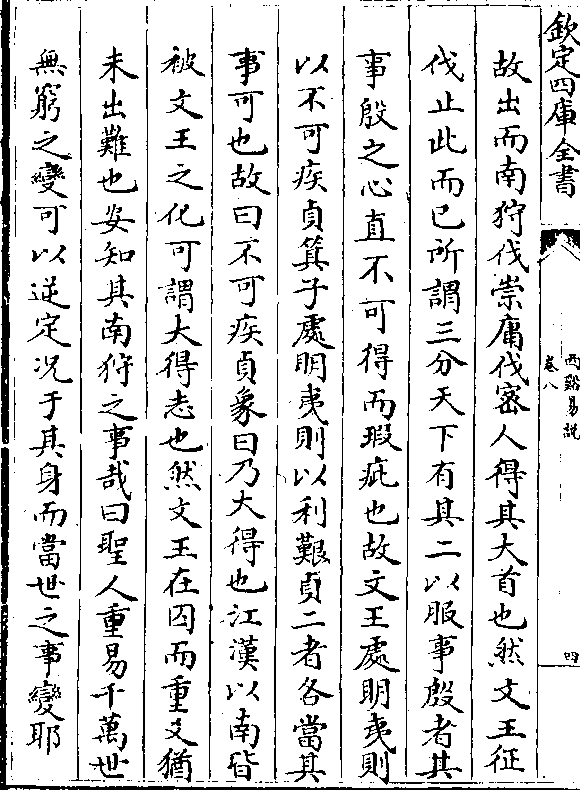 欽定四庫全書
西谿易說
卷八
四
故出而南狩伐崇庸伐密人得其大首也然文王征
伐止此而已所謂三分天下有其二以服事殷者其
事殷之心直不可得而瑕疵也故文王處明夷則
以不可疾貞箕子處明夷則以利艱貞二者各當其
事可也故曰不可疾貞象曰乃大得也江漢以南皆
被文王之化可謂大得志也然文王在囚而重爻猶
未出難也安知其南狩之事哉曰聖人重易千萬世
無窮之變可以逆定况于其身而當世之事變耶